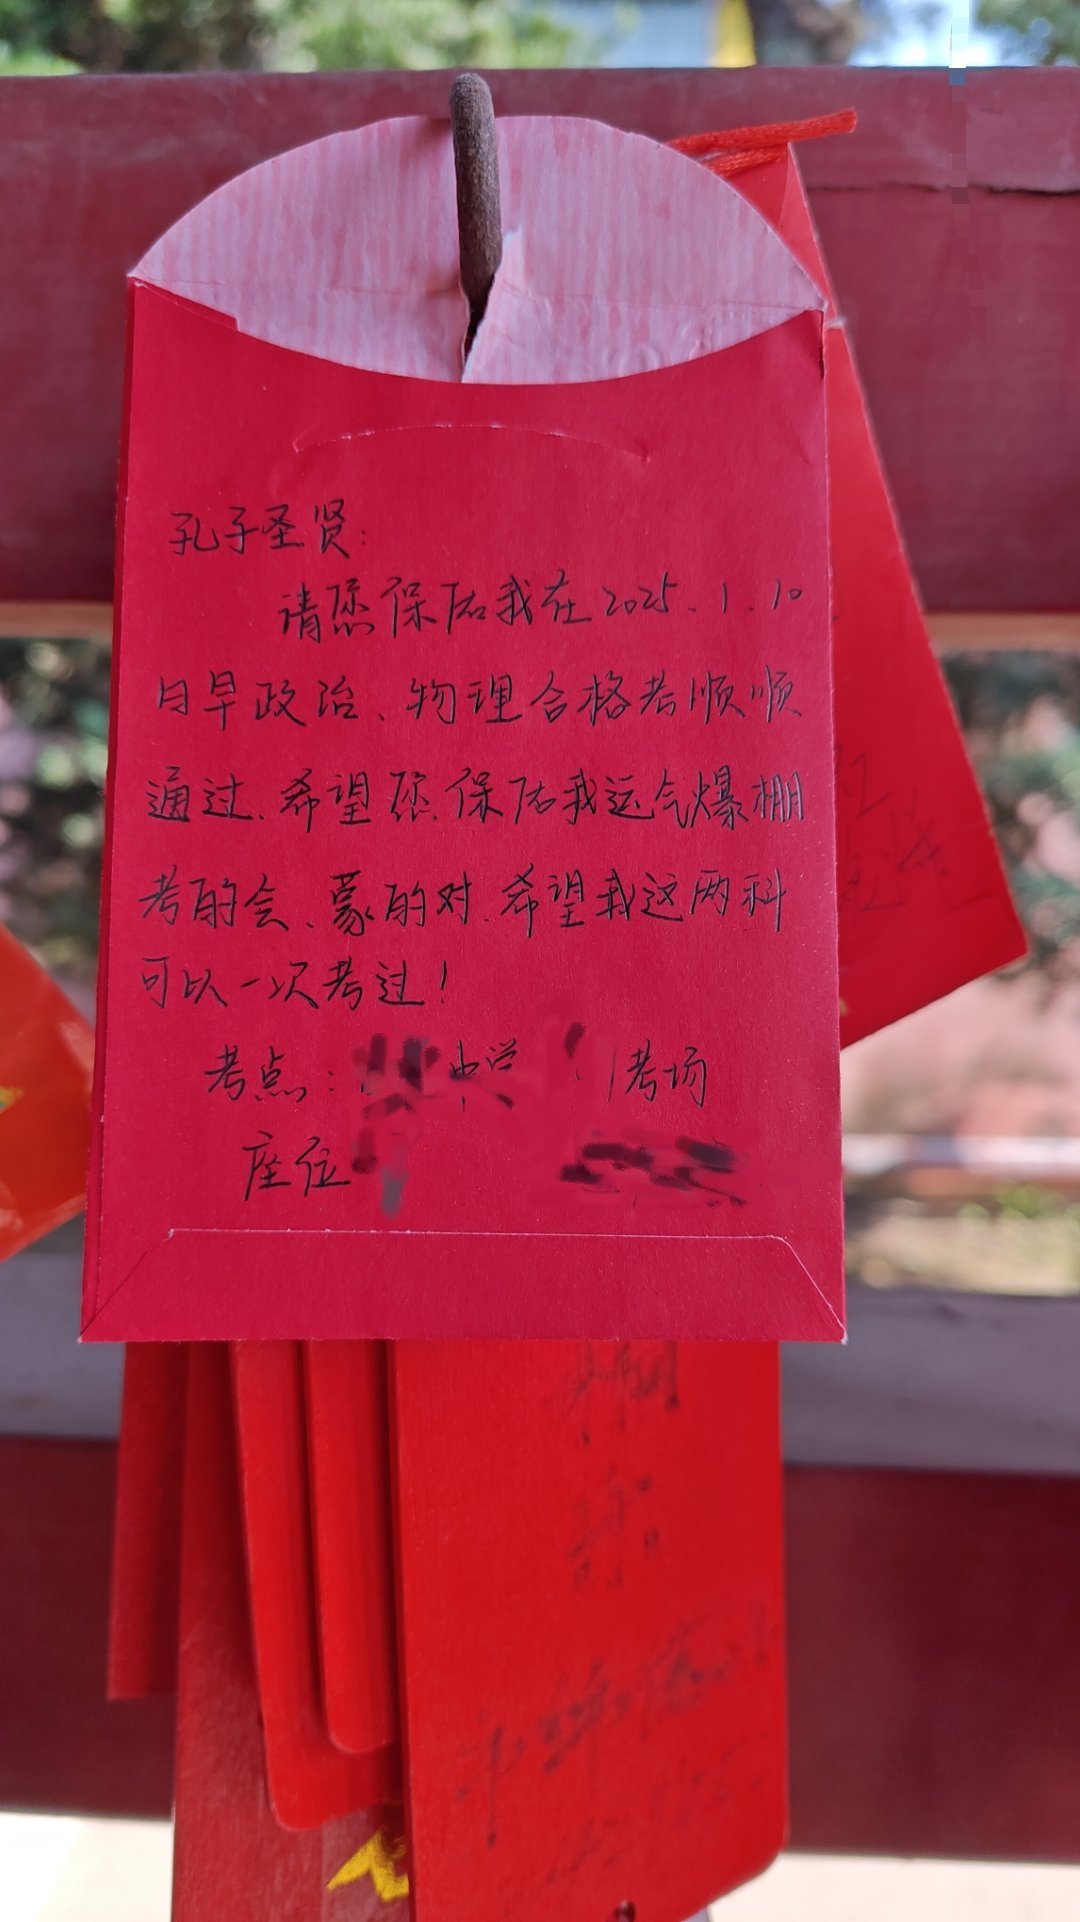 孔子圣贤：
请愿保佑我在2025.1.10
日早政治、物理合格考顺顺
通过、希望愿保佑我运气爆棚
考的会、蒙的对、希望我这两科
可以一次考过！
考点： 中学 考场
座位